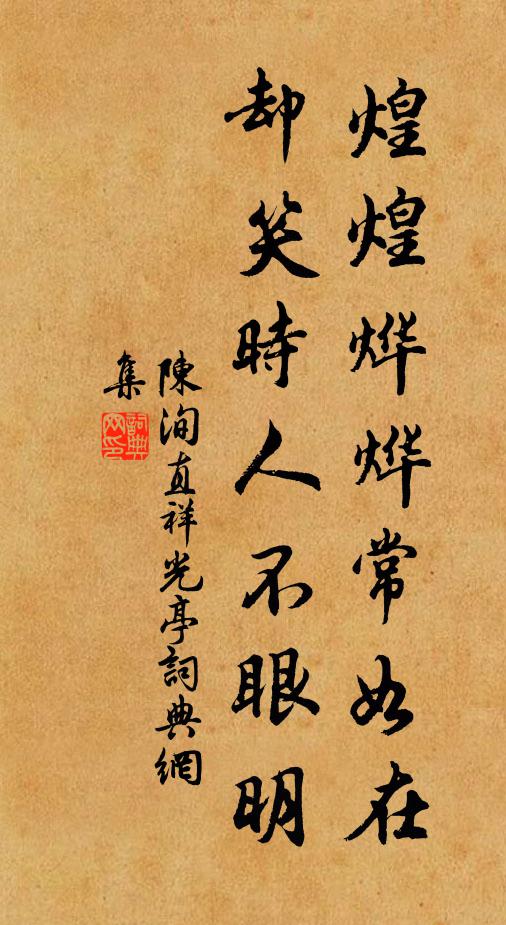 煌煌烨烨常如在
却笑時人不眼明
陳洵直祥光亭詞典網
集
詞典
网印